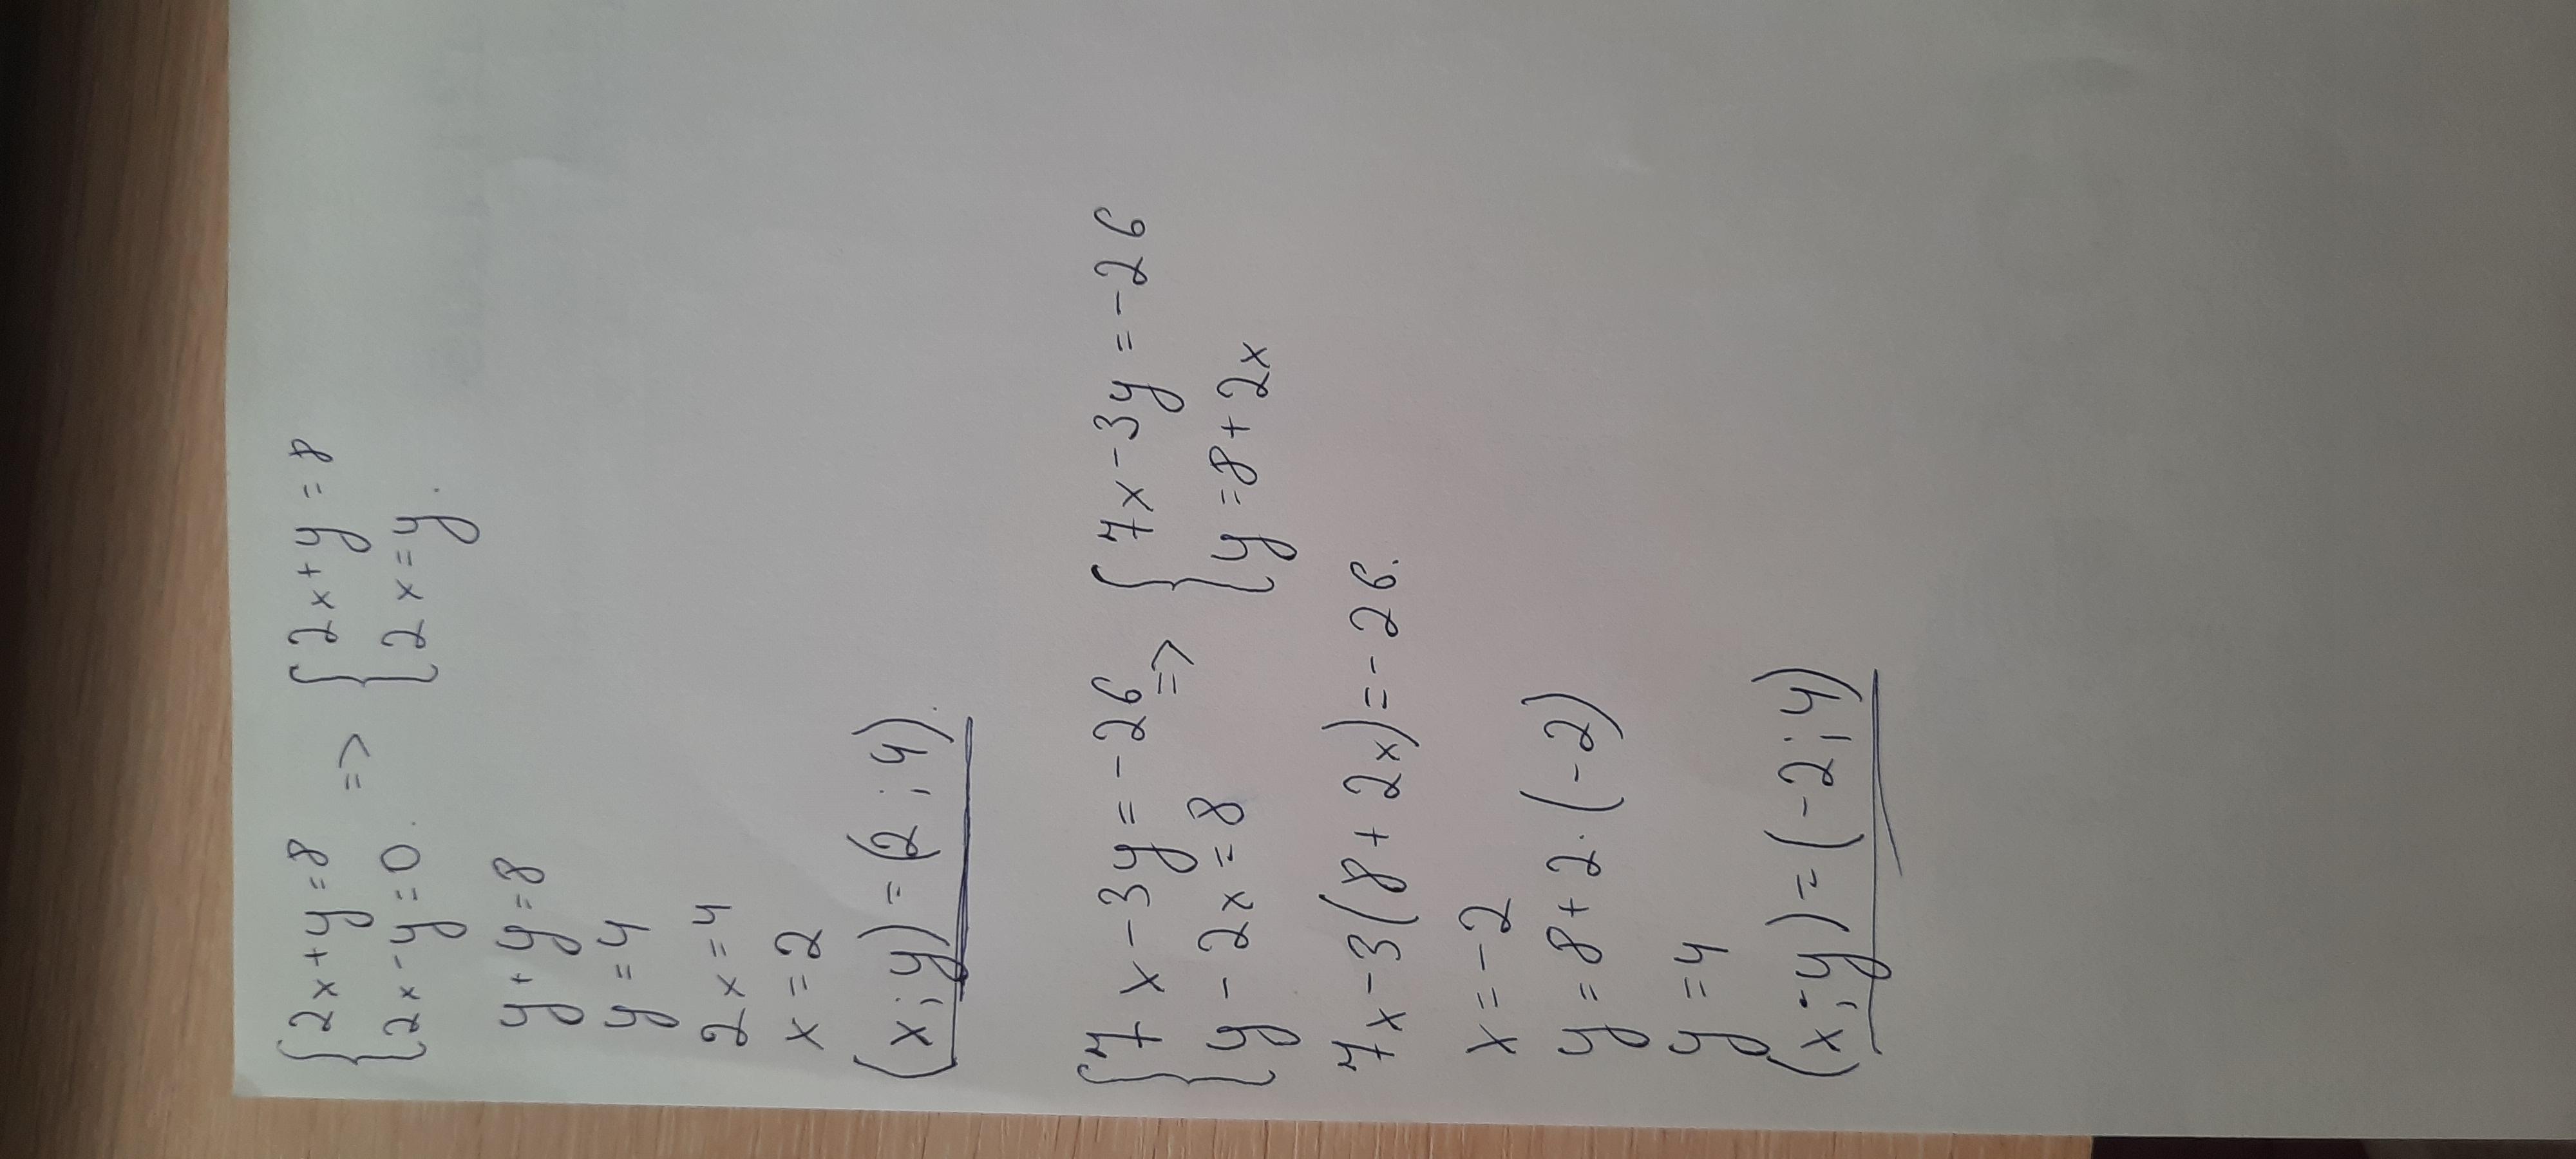 {2x+y=8 => {2x+y=8
{2x-y=0. {2x=y.
y+y=8
y=4
2x=4
x=2
(x;y)=(2;4).
{7x-3y=-26 => {7x-3y=-26
{y-2x=8 {y=8+2x
7x-3(8+2x)=-26.
x=-2
y=8+2·(-2)
y=4
(x;y)=(-2;4)